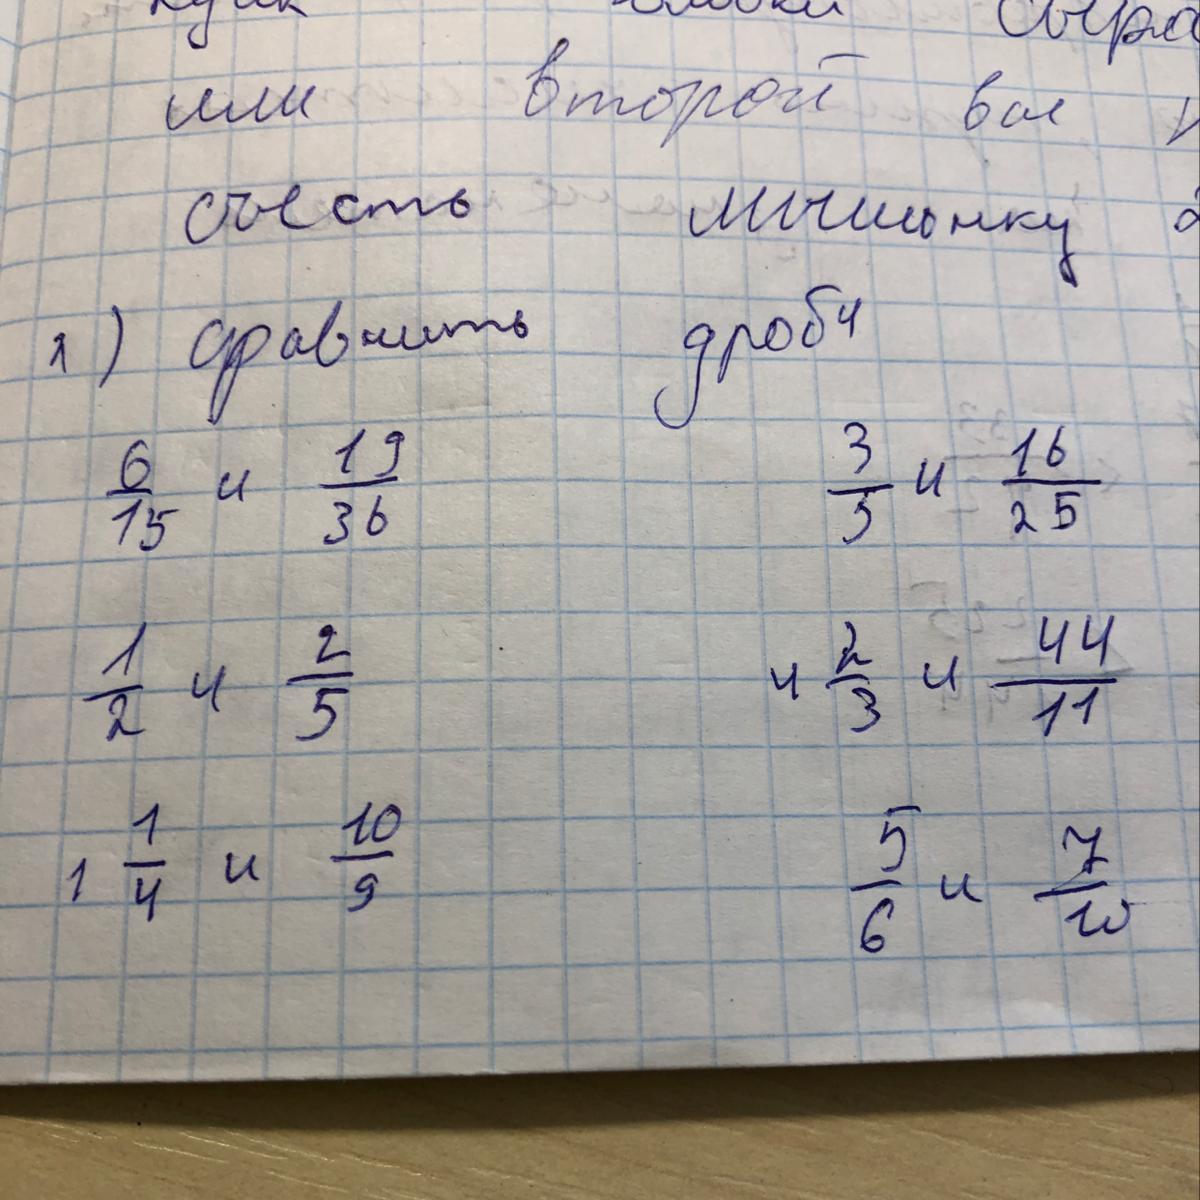 или второй
съесть мышонку
1) сравнить дроби
6/15 и 19/36 3/5 и 16/25
1/2 и 2/5 4 2/3 и 44/11
1 1/4 и 10/9 5/6 и 7/10